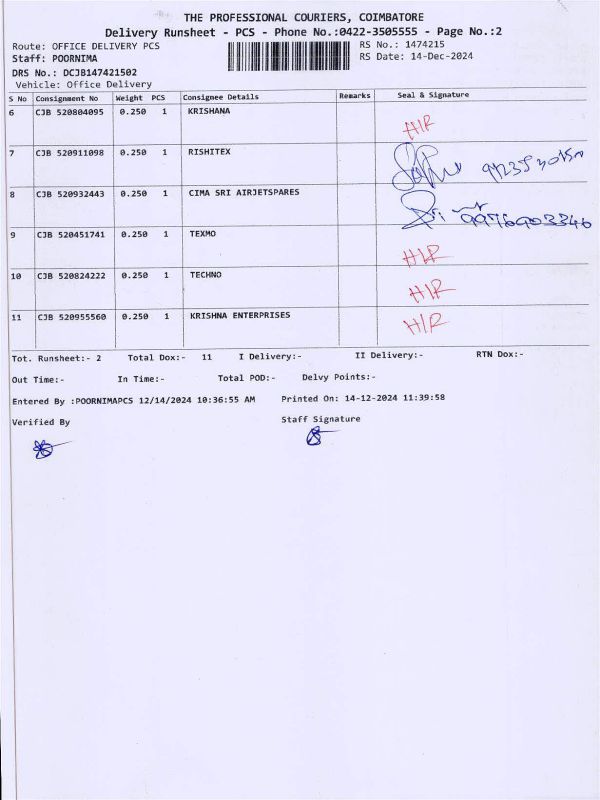 THE PROFESSIONAL COURIERS, COIMBATORE
Delivery Runsheet - PCS - Phone No.:0422-3505555 - Page No.:2
Route: OFFICE DELIVERY PCS RS No.: 1474215
Staff: POORNIMA RS Date: 14-Dec-2024
DRS No.: DCJB147421502
Vehicle: Office Delivery
S No Consignment No Weight PCS Consignee Details Remarks Seal & Signature
6 CJB 520804095 0.250 1 KRISHANA H/R
7 CJB 520911098 0.250 1 RISHITEX
8 CJB 520932443 0.250 1 CIMA SRI AIRJETSPARES 9976903346
9 CJB 520451741 0.250 1 TEXMO H/R
10 CJB 520824222 0.250 1 TECHNO H/R
11 CJB 520955560 0.250 1 KRISHNA ENTERPRISES H/R
Tot. Runsheet:- 2 Total Dox:- 11 I Delivery:- II Delivery:- RTN Dox:-
Out Time:- In Time:- Total POD:- Delvy Points:-
Entered By :POORNIMAPCS 12/14/2024 10:36:55 AM Printed On: 14-12-2024 11:39:58
Verified By Staff Signature